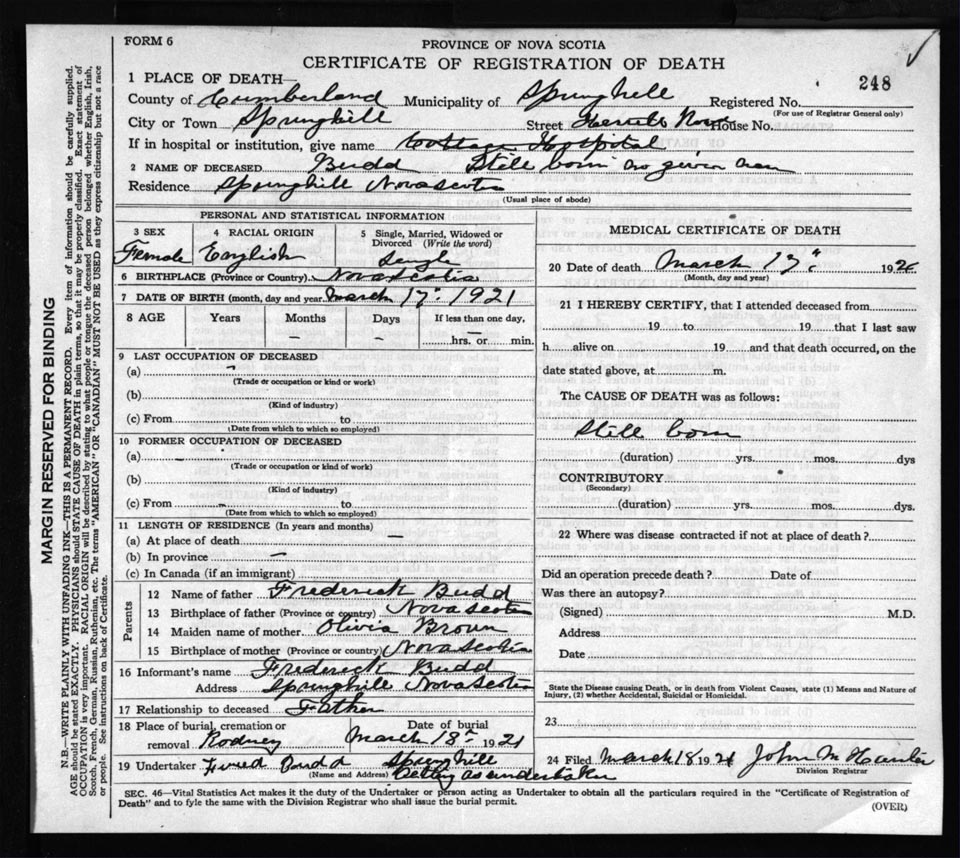 FORM 6
PROVINCE OF NOVA SCOTIA
CERTIFICATE OF REGISTRATION OF DEATH
248
1 PLACE OF DEATH—
County of Cumberland Municipality of Springhill Registered No.
(For use of Registrar General only)
City or Town Springhill Street House No.
If in hospital or institution, give name Cottage Hospital
2 NAME OF DECEASED Budd Still born no given
Residence Springhill Nova Scotia
(Usual place of abode)
PERSONAL AND STATISTICAL INFORMATION
3 SEX 4 RACIAL ORIGIN 5 Single, Married, Widowed or Divorced (Write the word)
Female English Single
6 BIRTHPLACE (Province or Country) Nova Scotia
7 DATE OF BIRTH (month, day and year) March 17" 1921
8 AGE Years Months Days If less than one day,
— — — hrs. or min.
9 LAST OCCUPATION OF DECEASED
(a) —
(Trade or occupation or kind or work)
(b)
(Kind of industry)
(c) From to
(Date from which to which so employed)
10 FORMER OCCUPATION OF DECEASED
(a) —
(Trade or occupation or kind of work)
(b)
(Kind of industry)
(c) From — to
(Date from which to which so employed)
11 LENGTH OF RESIDENCE (In years and months)
(a) At place of death —
(b) In province —
(c) In Canada (if an immigrant)
Parents
12 Name of father Frederick Budd
13 Birthplace of father (Province or country) Nova Scotia
14 Maiden name of mother Olivia Brown
15 Birthplace of mother (Province or country) Nova Scotia
16 Informant's name Frederick Budd
Address Springhill Nova Scotia
17 Relationship to deceased Father
18 Place of burial, cremation or Date of burial
removal Rodney March 18" 1921
19 Undertaker Budd Springhill
(Name and Address) acting as undertaker
MEDICAL CERTIFICATE OF DEATH
20 Date of death March 17" 192
(Month, day and year)
21 I HEREBY CERTIFY, that I attended deceased from
19 to 19 that I last saw
h alive on 19 and that death occurred, on the
date stated above, at m.
The CAUSE OF DEATH was as follows:
Still born
(duration) yrs. mos. dys
CONTRIBUTORY
(Secondary)
(duration) yrs. mos. dys.
22 Where was disease contracted if not at place of death?
Did an operation precede death? Date of
Was there an autopsy?
(Signed) M.D.
Address
Date
State the Disease causing Death, or in death from Violent Causes, state (1) Means and Nature of
Injury, (2) whether Accidental, Suicidal or Homicidal.
23
24 Filed March 18 1921 John M
Division Registrar
SEC. 46—Vital Statistics Act makes it the duty of the Undertaker or person acting as Undertaker to obtain all the particulars required in the "Certificate of Registration of
Death" and to fyle the same with the Division Registrar who shall issue the burial permit.
(OVER)
MARGIN RESERVED FOR BINDING
N.B.—WRITE PLAINLY WITH UNFADING INK—THIS IS A PERMANENT RECORD. Every item of information should be carefully supplied.
AGE should be stated EXACTLY. PHYSICIANS should STATE CAUSE OF DEATH in plain terms, so that it may be properly classified. Exact statement of
OCCUPATION is very important. RACIAL ORIGIN will be described by stating to what people or tongue the deceased person belonged, whether English, Irish,
Scotch, French, German, Russian, Ruthenian, etc. The terms "AMERICAN" OR "CANADIAN" MUST NOT BE USED as they express citizenship but not a race
or people. See instructions on back of Certificate.